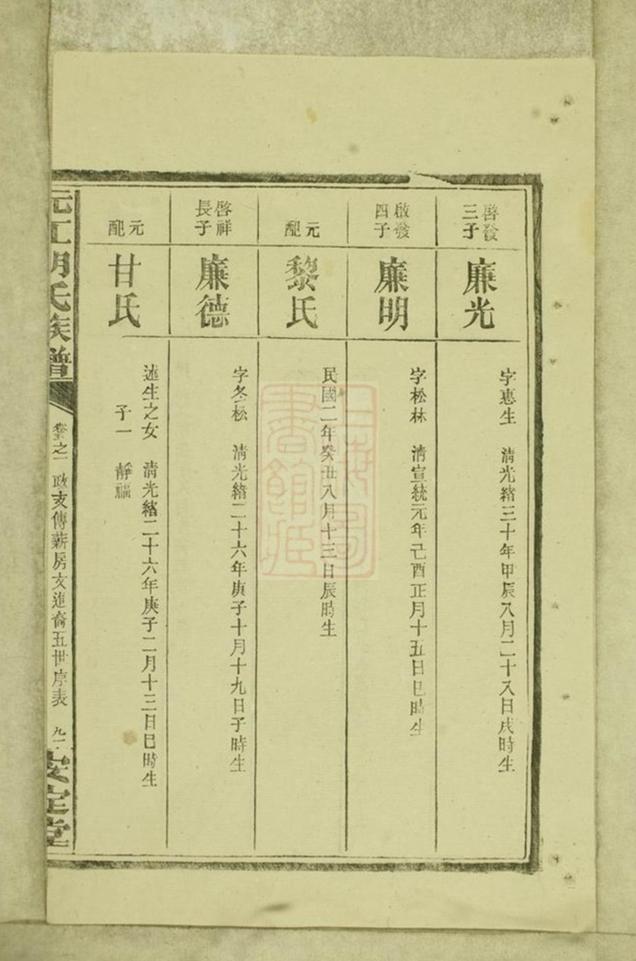 啓發三子
廉光
字惠生　清光緒三十年甲辰八月二十八日戌時生
啟發四子
廉明
字松林　清宣統元年己酉正月十五日巳時生
元配
黎氏
民國二年癸丑八月十三日辰時生
啓祥長子
廉德
字冬松　清光緒二十六年庚子十月十九日子時生
元配
甘氏
述生之女　清光緒二十六年庚子二月十三日巳時生
子一　靜福
沅江胡氏族譜
卷之一　政支傳薪房友蓮裔五世序表　九一
安定堂